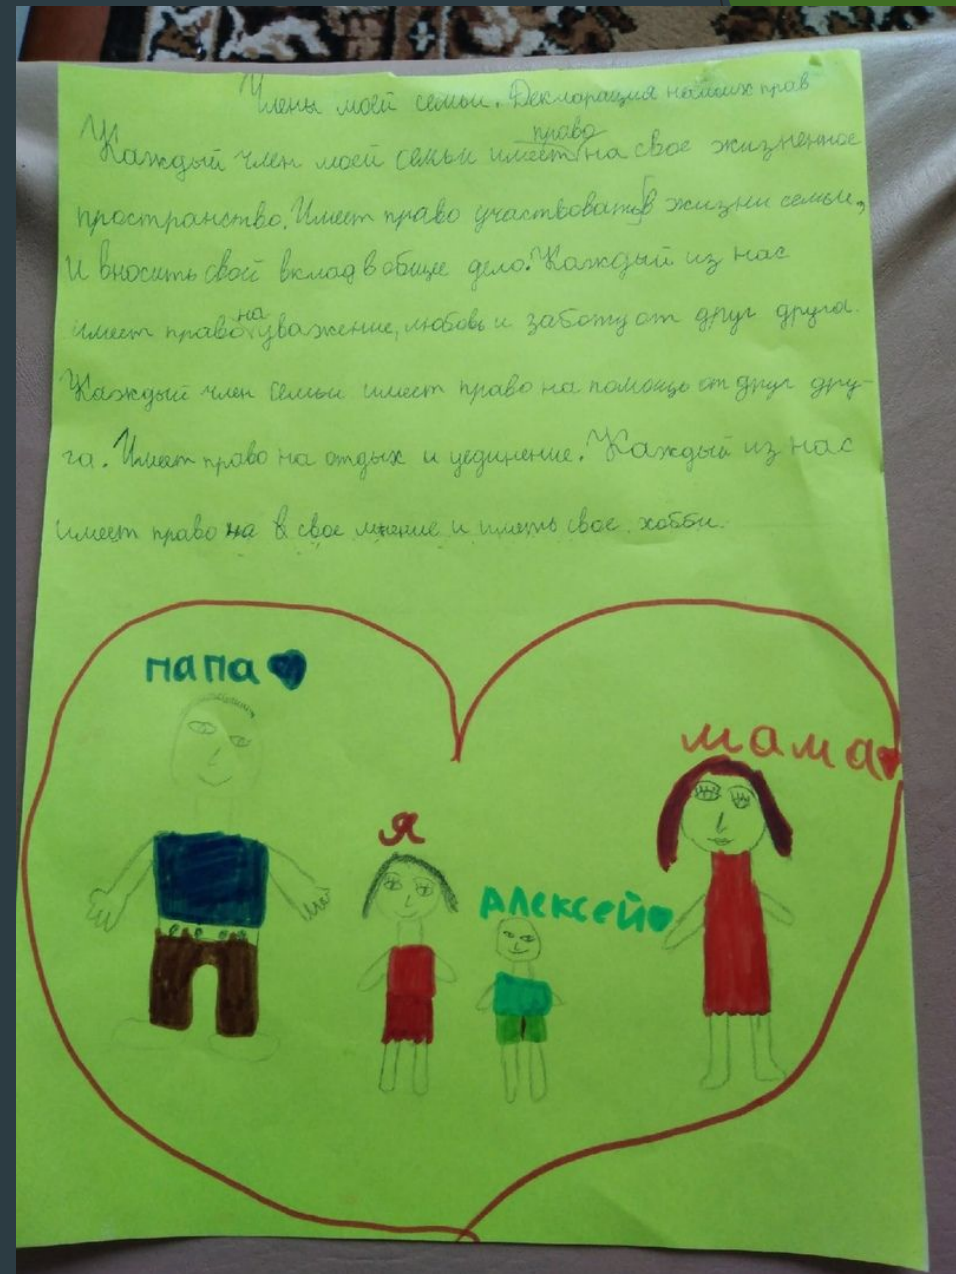 Члены моей семьи. Декларация наших прав
Каждый член моей семьи имеет право на свое жизненное
пространство. Имеет право участвовать в жизни семьи,
и вносить свой вклад в общее дело. Каждый из нас
имеет право на уважение, любовь и заботу от друг друга.
Каждый член семьи имеет право на помощь от друг дру-
га. Имеет право на отдых и уединение. Каждый из нас
имеет право на в свое мнение и иметь свое хобби.
папа
мама
я
Алексей